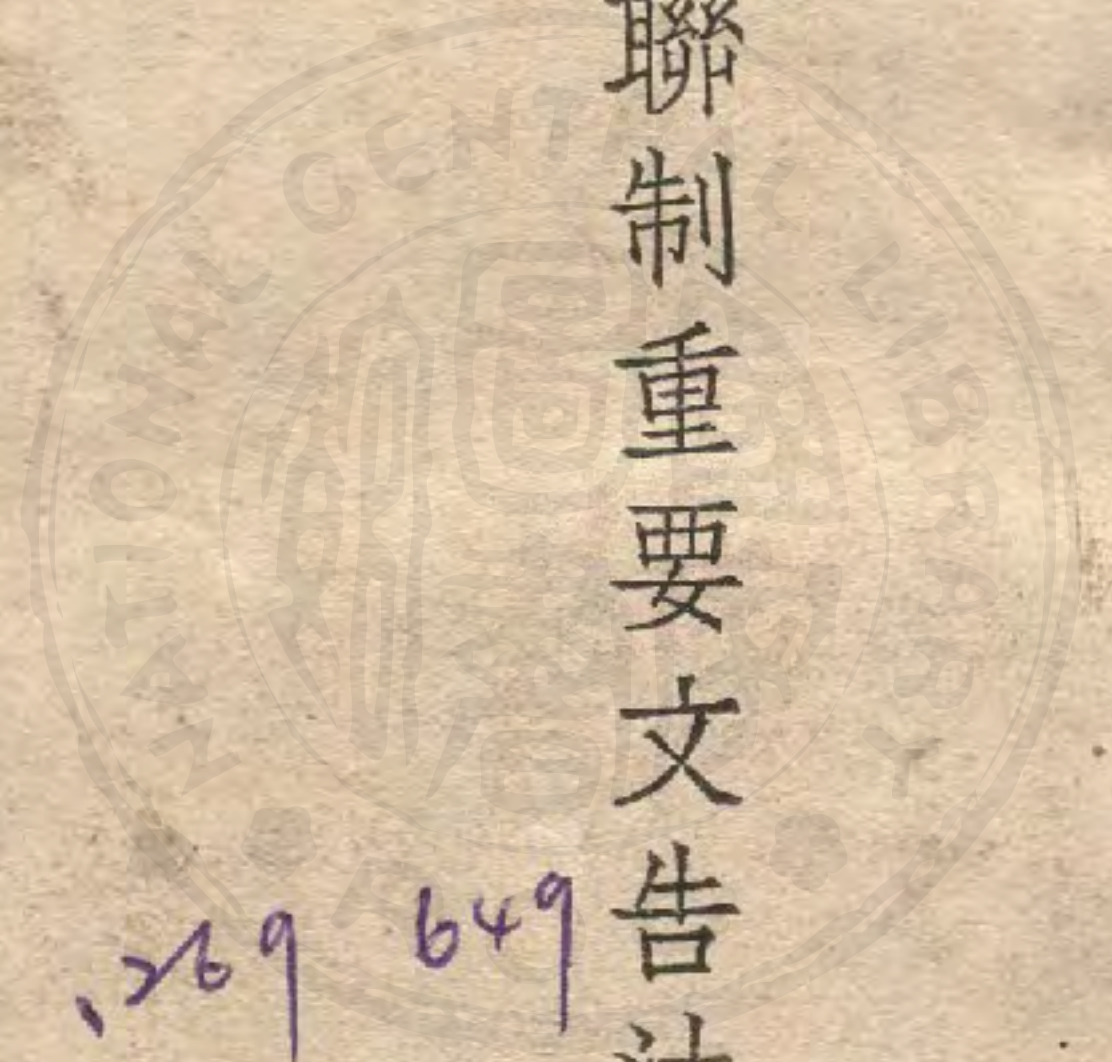 聯制重要文告
649
.269
NATIONAL CENTRAL LIBRARY